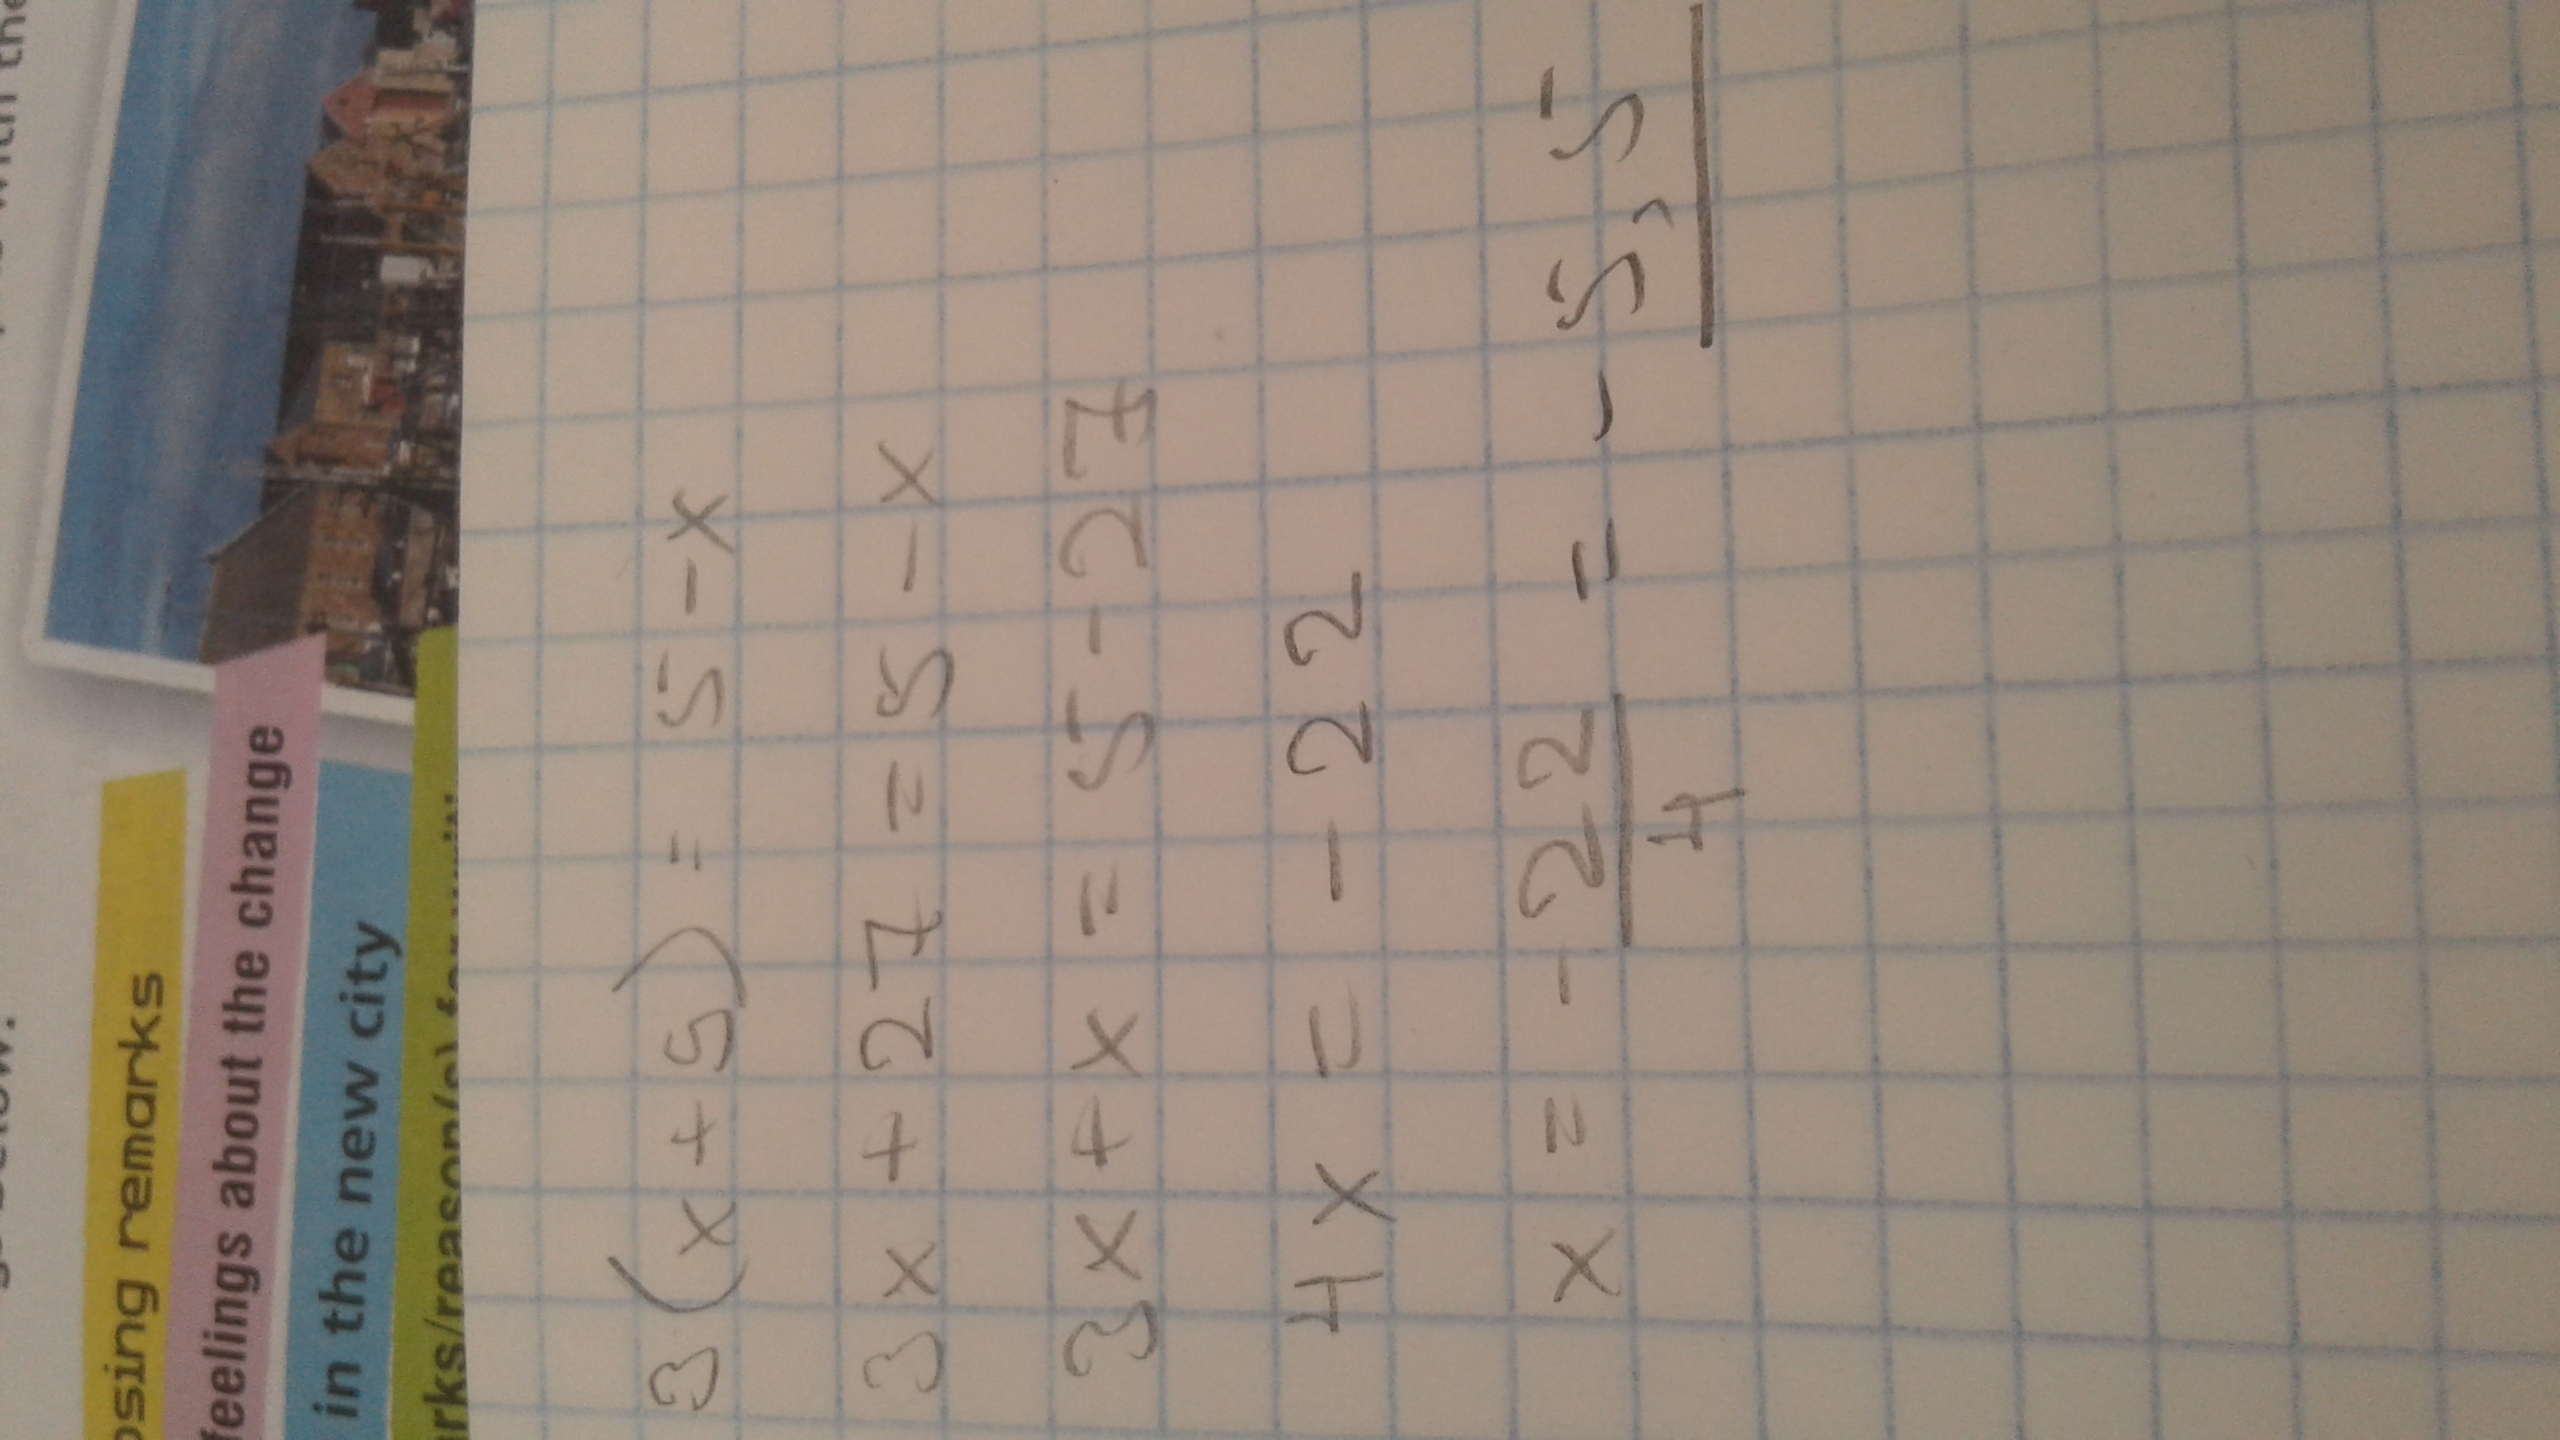 below:
with the
osing remarks
feelings about the change
in the new city
rks/reason(s) for writi
3(x+9) = 5-x
3x+27=5-x
3x+x=5-27
4x=-22
x=-22/4=-5,5